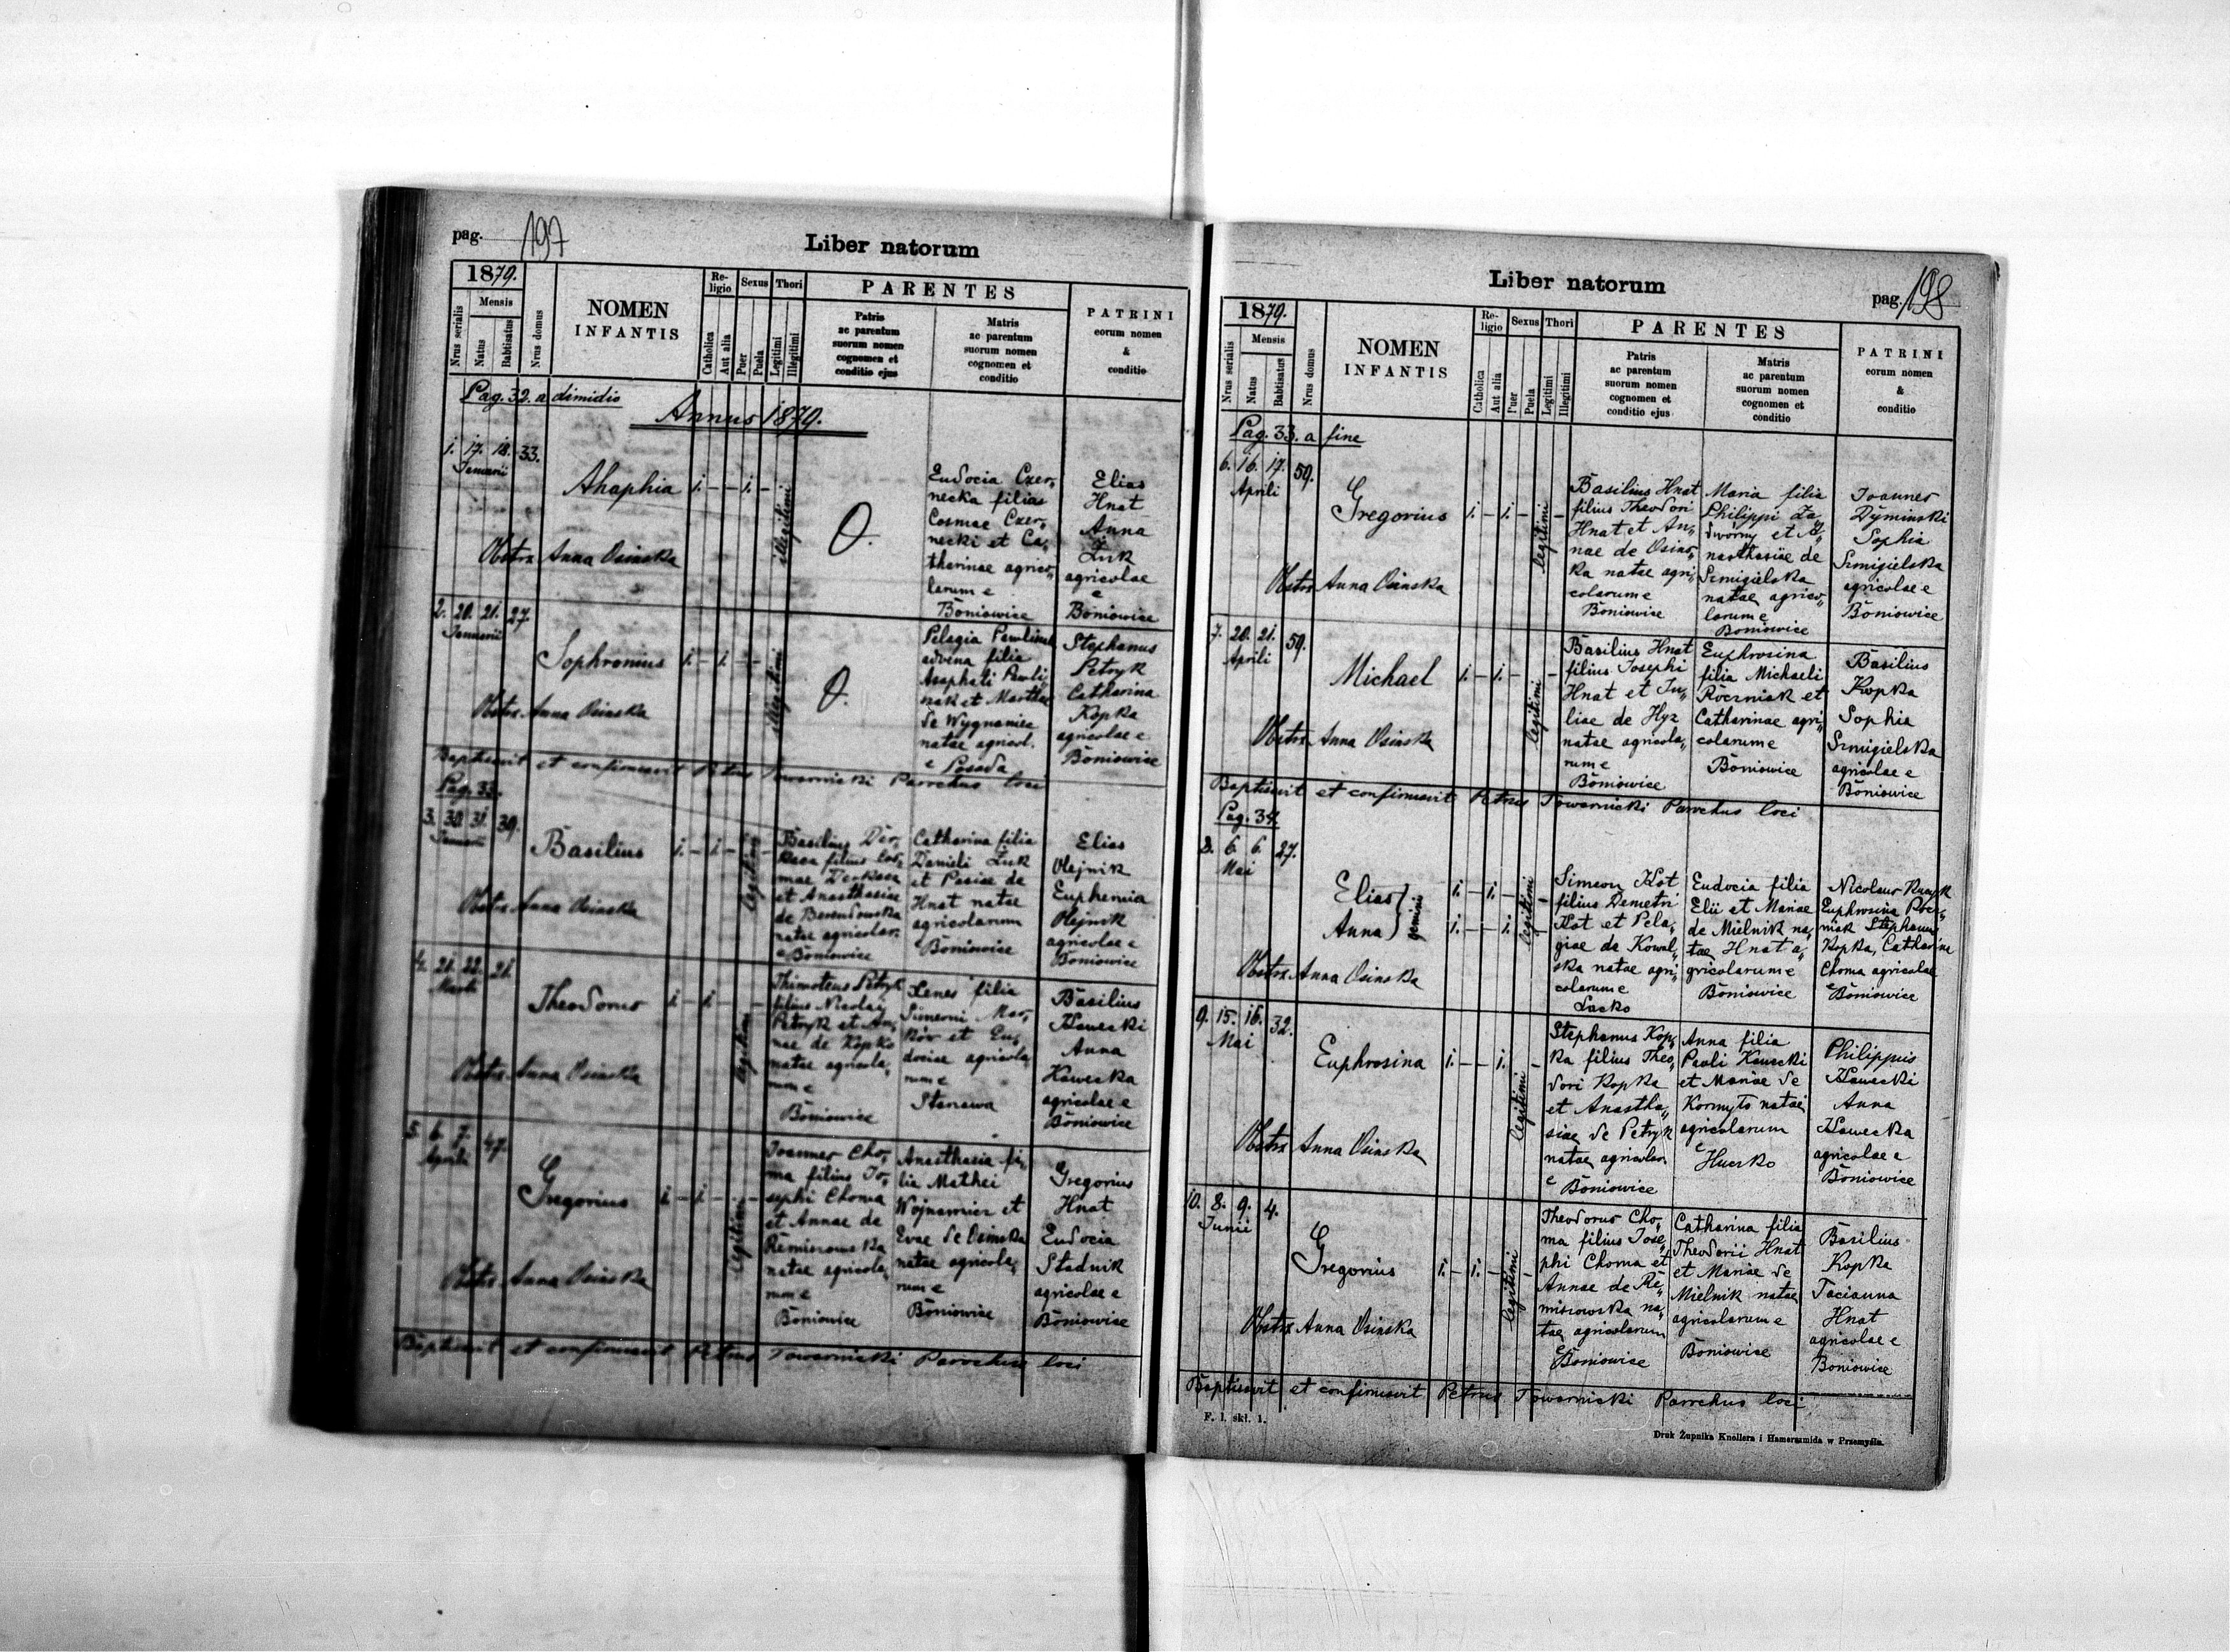 pag. 197
Liber natorum
1879.
Nrus serialis
Mensis
Natus
Babtisatus
Nrus domus
NOMEN
INFANTIS
Re-
ligio
Catholica
Aut alia
Sexus
Puer
Puela
Thori
Legitimi
Illegitimi
PARENTES
Patris
ac parentum
suorum nomen
cognomen et
conditio ejus
Matris
ac parentum
suorum nomen
cognomen et
conditio
PATRINI
eorum nomen
&
conditio
Pag. 32. a dimidio
Annus 1879.
1. 17. 18. 33.
Januarii
Ahaphia
1. - - 1. -
illegitimi
O.
Eudocia Czer„
necka filia
Cosmae Czer„
necki et Ca„
tharinae agrico„
larum e
Boniowice
Elias
Hnat
Anna
Żuk
agricolae
e
Boniowice
Obstrx Anna Osinska
2. 20. 21. 27.
Januarii
Sophronius
1. - 1. - -
illegitimi
O.
Pelagia
advena filia
Asaphati Pawli„
nak et Marthae
de Wygnanica
natae agricol.
e Posada
Stephanus
Petryk
Catharina
Kopka
agricolae e
Boniowice
Obstrx Anna Osinska
Baptisavit et confirmavit Petrus Towarnicki Parochus loci
Pag. 33.
3. 30. 31. 39.
Januarii
Basilius
1. - 1. -
legitimi
Basilius Der„
kacz filius Cos„
mae Derkacz
et Anasthasiae
de Berendowska
natae agricolar.
e Boniowice
Catharina filia
Danieli Żuk
et Pasiae de
Hnat natae
agricolarum
e Boniowice
Elias
Olejnik
Euphemia
Olejnik
agricolae e
Boniowice
Obstrx Anna Osinska
4. 21. 22. 21.
Marti
Theodorus
1. - 1. - -
legitimi
Thimoteus Petryk
filius Nicolai
Petryk et An„
nae de Kopko
natae agricola„
rum e
Boniowice
filia
Simeoni
et Eu„
dociae agricola„
rum e
Stanawa
Basilius
Hawecki
Anna
Hawecka
agricolae e
Boniowice
Obstrx Anna Osinska
5. 6. 7. 47.
Aprili
Gregorius
1. - 1. - -
legitimi
Joannes Cho„
ma filius Jo„
sephi Choma
et Annae de
Remiszowska
natae agricola„
rum e
Boniowice
Anasthasia fi„
lia Mathei
Wojnarowicz et
Evae de Osinska
natae agricola„
rum e
Boniowice
Gregorius
Hnat
Eudocia
Stadnik
agricolae e
Boniowice
Obstrx Anna Osinska
Baptisavit et confirmavit Petrus Towarnicki Parochus loci
Liber natorum
pag. 198
1879.
Nrus serialis
Mensis
Natus
Babtisatus
Nrus domus
NOMEN
INFANTIS
Re-
ligio
Catholica
Aut alia
Sexus
Puer
Puela
Thori
Legitimi
Illegitimi
PARENTES
Patris
ac parentum
suorum nomen
cognomen et
conditio ejus
Matris
ac parentum
suorum nomen
cognomen et
conditio
PATRINI
eorum nomen
&
conditio
Pag. 33. a fine
6. 16. 17. 59.
Aprili
Gregorius
1. - 1. - -
legitimi
Basilius Hnat
filius Theodori
Hnat et An„
nae de Osins„
ka natae agri„
colarum e
Boniowice
Maria filia
Philippi Za„
dworny et A„
nasthasiae de
Szmigielska
natae agrico„
larum e
Boniowice
Joannes
Dyminski
Sophia
Szmigielska
agricolae e
Boniowice
Obstrx Anna Osinska
7. 20. 21. 59.
Aprili
Michael
1. - 1. - -
legitimi
Basilius Hnat
filius Josephi
Hnat et Ju„
liae de Hyz
natae agricola„
rum e
Boniowice
Euphrosina
filia Michaeli
Roczniak et
Catharinae agri„
colarum e
Boniowice
Basilius
Kopka
Sophia
Szmigielska
agricolae e
Boniowice
Obstrx Anna Osinska
Baptisavit et confirmavit Petrus Towarnicki Parochus loci
Pag. 34.
8. 6. 6. 27.
Mai
Elias
Anna
gemini
1. - 1. - -
1. - - 1. -
legitimi
Simeon Kot
filius Demetri
Kot et Pela„
giae de Kowal„
ska natae agri„
colarum e
Lacko
Eudocia filia
Elii et Mariae
de Mielnik na„
tae Hnat a„
gricolarum e
Boniowice
Nicolaus
Euphrosina Rocz„
niak Stephanus
Kopka, Catharina
Choma agricolae
e Boniowice
Obstrx Anna Osinska
9. 15. 16. 32.
Mai
Euphrosina
1. - - 1. -
legitimi
Stephanus Kop„
ka filius Theo„
dori Kopka
et Anastha„
siae de Petryk
natae agricolar.
e Boniowice
Anna filia
Pauli Hawecki
et Mariae de
Kormyto natae
agricolarum
e Huczko
Philippus
Hawecki
Anna
Hawecka
agricolae e
Boniowice
Obstrx Anna Osinska
10. 8. 9. 4.
Junii
Gregorius
1. - 1. - -
legitimi
Theodorus Cho„
ma filius Jose„
phi Choma et
Annae de Re„
miszowska na„
tae agricolarum
e Boniowice
Catharina filia
Theodorii Hnat
et Mariae de
Mielnik natae
agricolarum e
Boniowice
Basilius
Kopka
Tacianna
Hnat
agricolae e
Boniowice
Obstrx Anna Osinska
Baptisavit et confirmavit Petrus Towarnicki Parochus loci
F. l. skł. 1.
Druk Żupnika Knollera i Hamerszmida w Przemyślu.